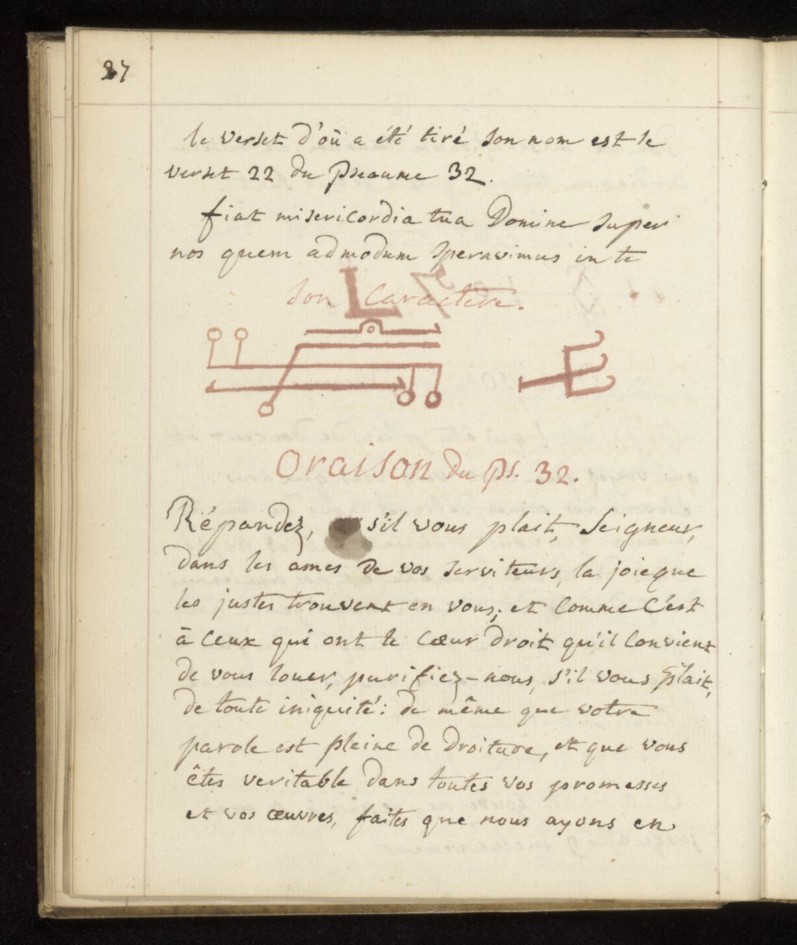 27
le verset d'où a été tiré son nom est le
verset 22 du Pseaume 32.
fiat misericordia tua Domine super
nos quem admodum speravimus in te
son Caractere.
Oraison du ps. 32.
Répandez, s'il vous plait, Seigneur,
dans les ames de vos serviteurs, la joie que
les justes trouvent en vous; et comme c'est
à ceux qui ont le cœur droit qu'il convient
de vous louer, purifiez-nous, s'il vous plait,
de toute iniquité: de même que votre
parole est pleine de droiture, et que vous
êtes veritable dans toutes vos promesses
et vos œuvres, faites que nous ayons en